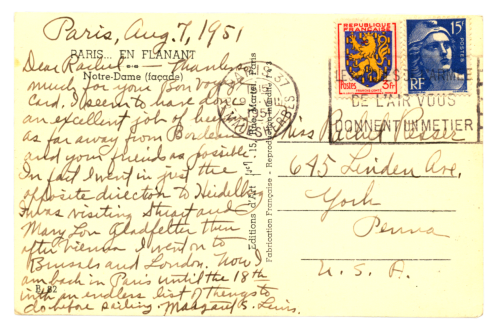 Paris, Aug. 7, 1951
PARIS... EN FLANANT
Notre-Dame (façade)
Dear Rachel — Thanks
much for your Bon Voyage
Card. I seem to have done
an excellent job of
as far away from Bordeaux
and your friends as possible.
In fact I went in just the
opposite direction to Heidelberg
I was visiting Stuart and
Mary Lou Gladfelter then
after Vienna I went on to
Brussels and London. Now I
am back in Paris until the 18th
with an endless list of things to
do before sailing. Margaret S. Lewis.
B. 82
Editions d'Art
15, Rue Martel, Paris
Fabrication Française - Reproduction Interdite
REPUBLIQUE FRANÇAISE
Postes 3fr
15F POSTES
RF
DE L'AIR VOUS
DONNENT UN METIER
Miss Rachel
645 Linden Ave.
York
Penna
U. S. A.